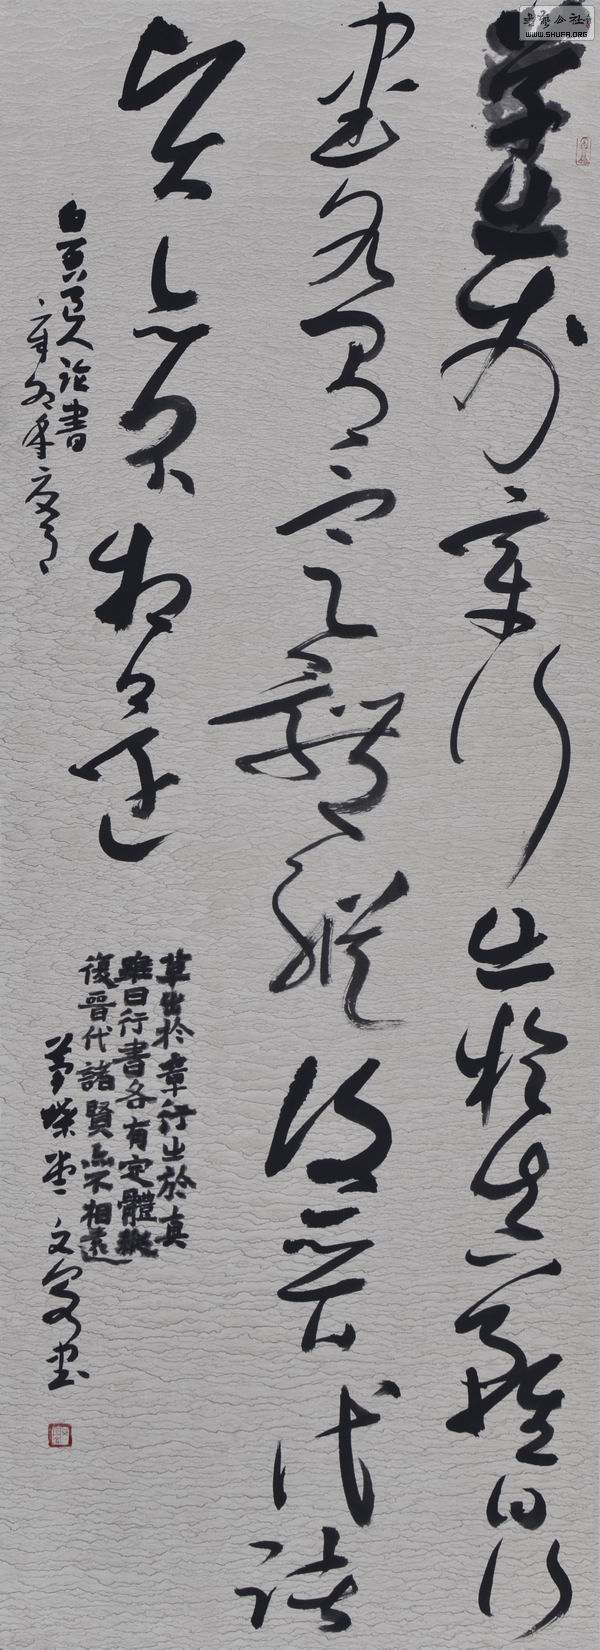 草出於章行出於真雖曰行
書各有定體縱復晉代諸
賢亦不相遠
白石道人論書
草出於章行出於真
雖曰行書各有定體縱
復晉代諸賢亦不相遠
夢蝶堂文書
WWW.SHUFA.ORG